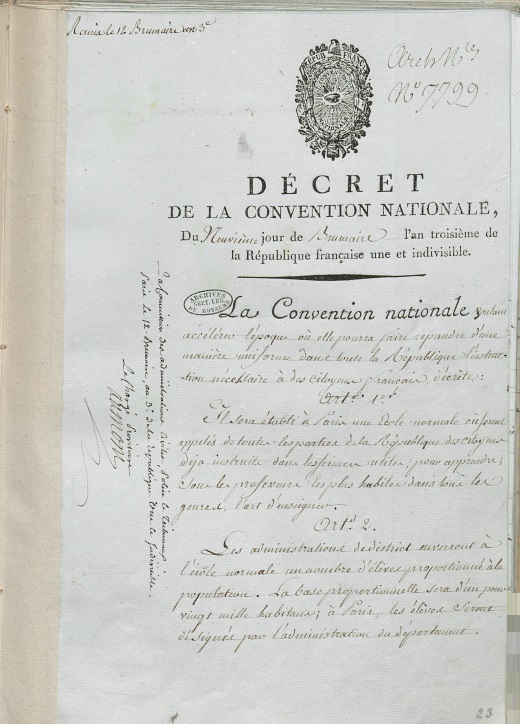 Remis le 12 Brumaire an 3e
Arch Nles
No 7799
RÉPUB FRANÇ
DÉCRET
DE LA CONVENTION NATIONALE,
Du Neuvième jour de Brumaire l'an troisième de
la République française une et indivisible.
ARCHIVES
SECT. LÉG.
DU ROYAUME
La Convention nationale, voulant
accélérer l'époque où elle pourra faire répandre d'une
manière uniforme dans toute la République l'instruc-
tion nécessaire à des citoyens français, décrète:
Art. 1er
Il sera établi à Paris une école normale où seront
appelés de toutes les parties de la République des citoyens
déja instruits dans les sciences utiles, pour apprendre,
sous les professeurs les plus habiles dans tous les
genres, l'art d'enseigner.
Art. 2.
Les administrations de district enverront à
l'école normale un nombre d'élèves proportionné à la
population. La base proportionnelle sera d'un pour
vingt mille habitans; à Paris, les élèves seront
désignés par l'administration du département.
La Commission des administrations civiles, police et tribunaux
Paris le 12 Brumaire, an 3e de la république une et indivisible.
Le Chargé provisoire
Aumont
23